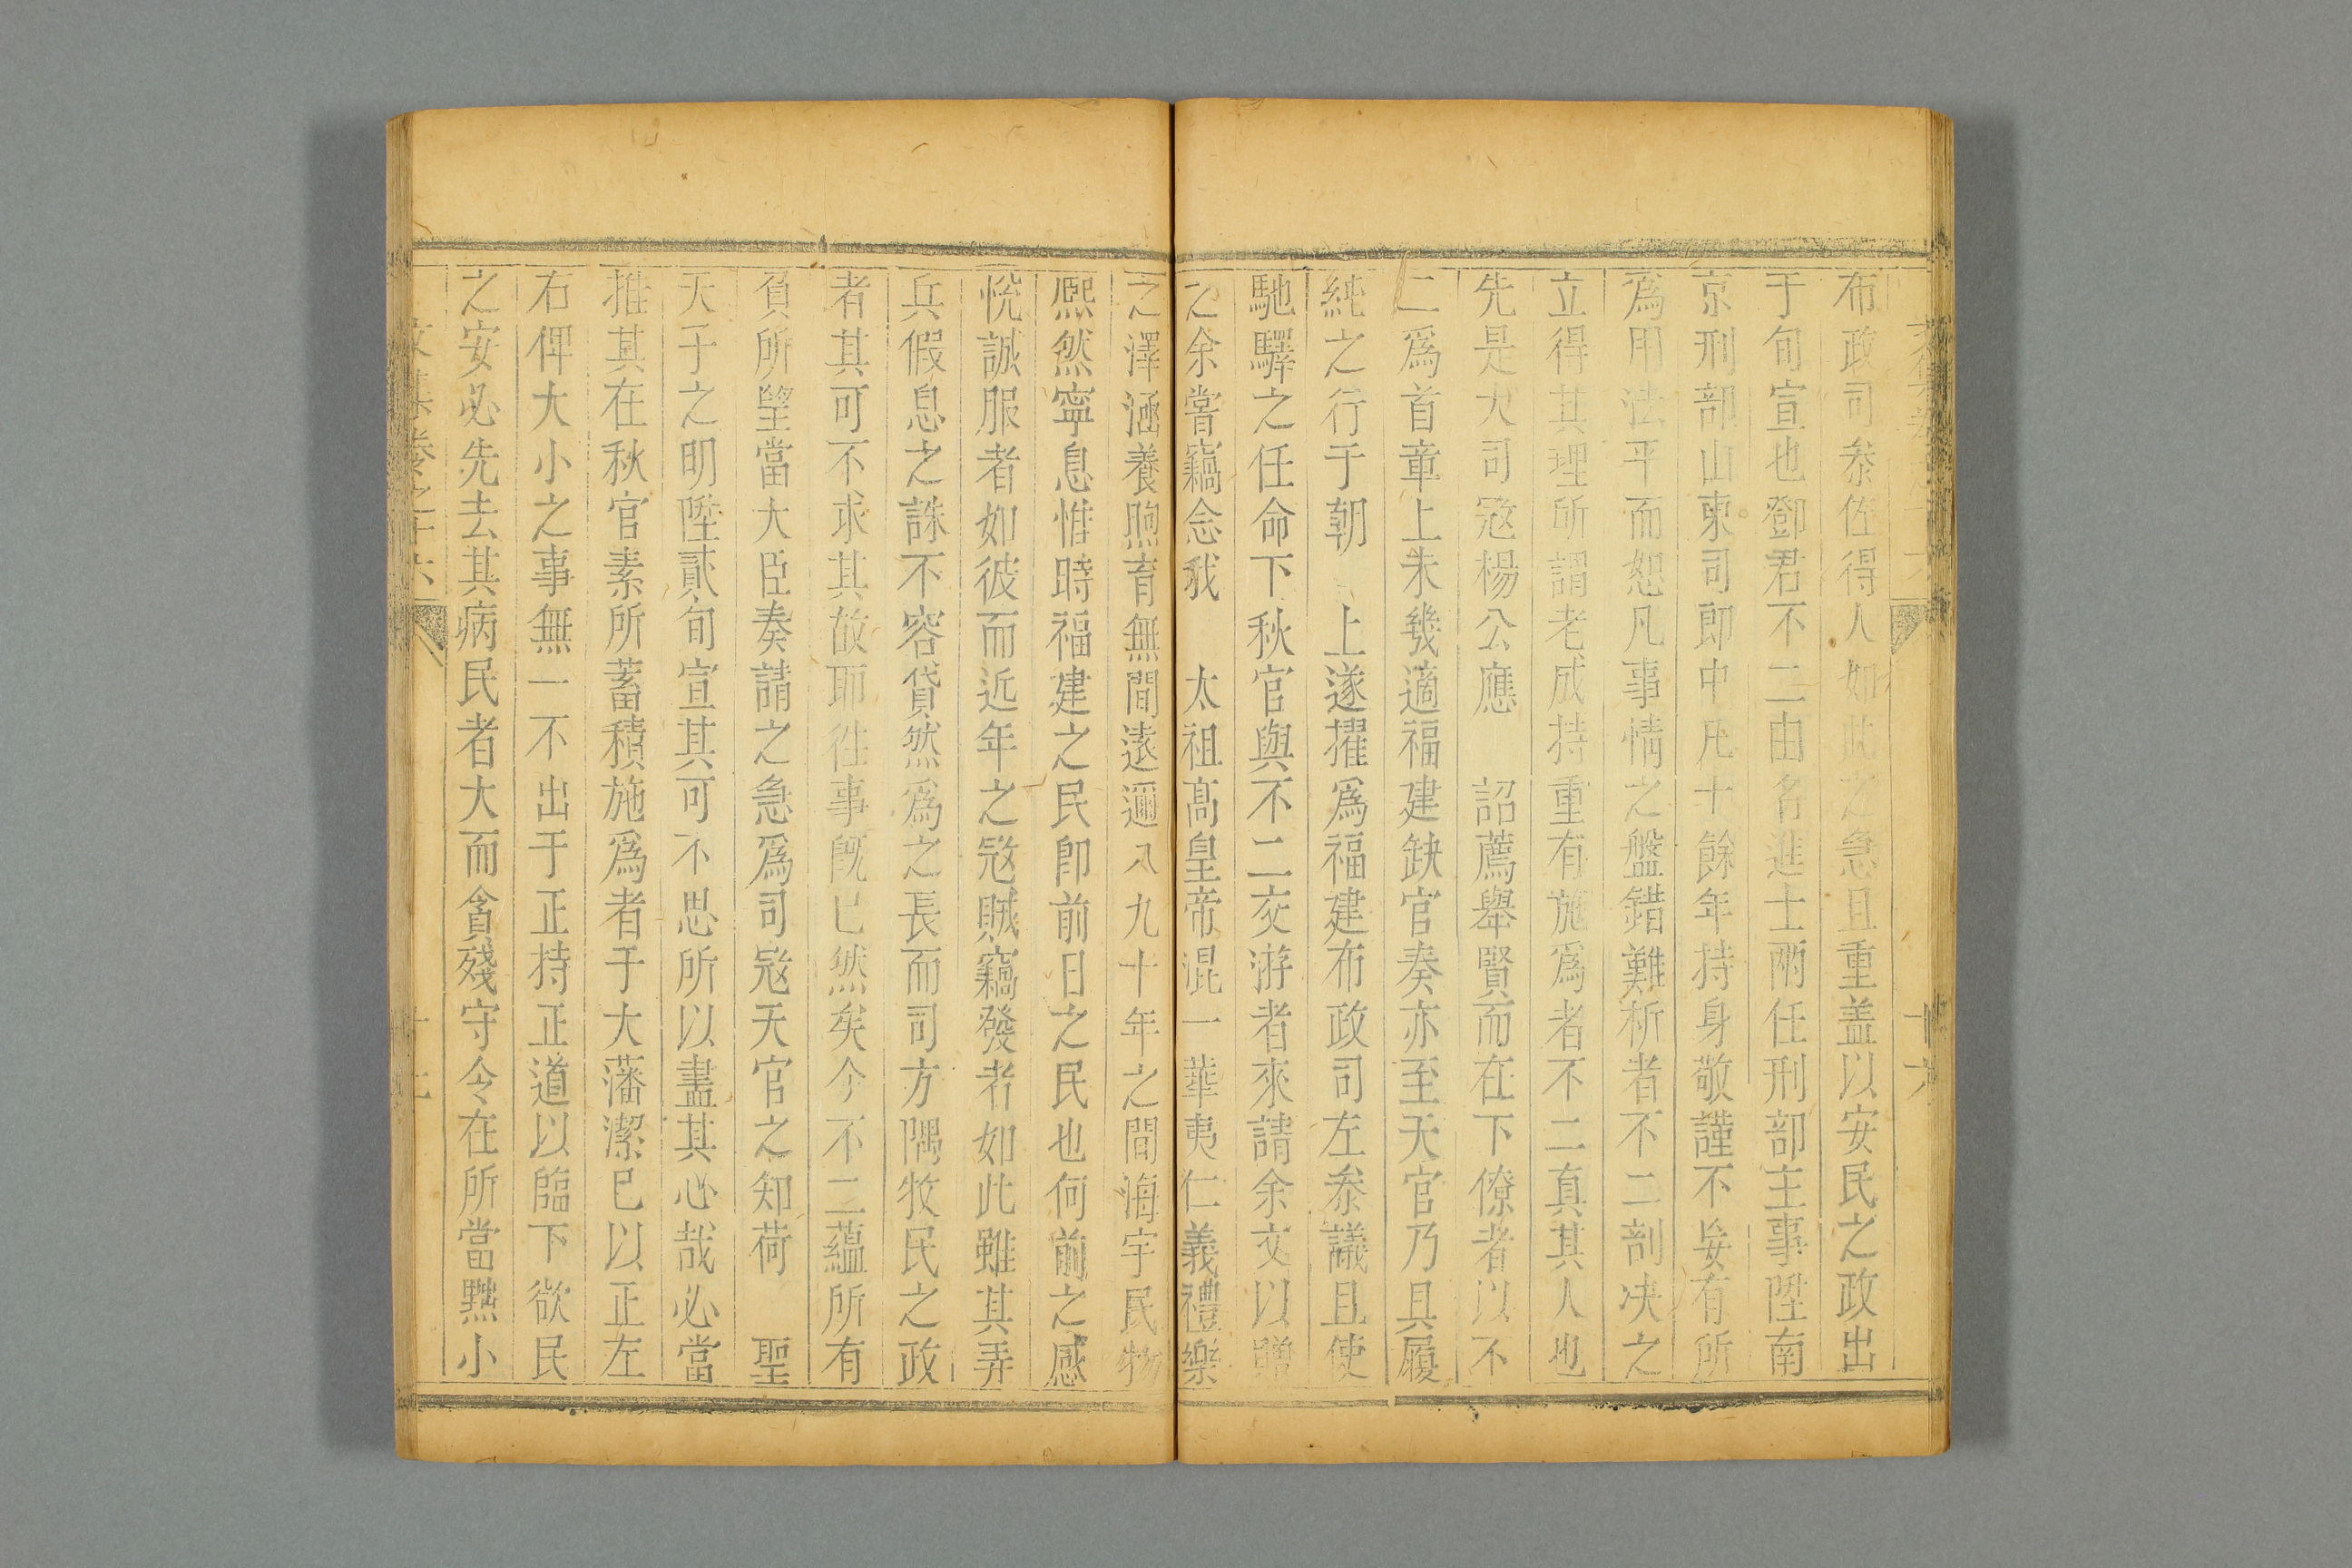 布政司叅佐得人如此之急且重盖以安民之政出
于旬宣也鄧君不二由名進士兩任刑部主事陞南
京刑部山東司郎中凡十餘年持身敬謹不妄有所
爲用法平而恕凡事情之盤錯難析者不二剖决之
立得其理所謂老成持重有施爲者不二真其人也
先是大司宼楊公應 詔薦舉賢而在下僚者以不
二爲首章上未幾適福建缺官奏亦至天官乃具履
純之行于朝 上遂擢爲福建布政司左叅議且使
馳驛之任命下秋官與不二交游者來請余文以贈
之余嘗竊念我 太祖高皇帝混一華夷仁義禮樂
之澤涵養煦育無間逺邇八九十年之間海宇民物
熈然寧息惟時福建之民卽前日之民也何前之感
恱誠服者如彼而近年之宼賊竊發者如此雖其弄
兵假息之誅不容貸然爲之長而司方隅牧民之政
者其可不求其故耶徃事旣已然矣今不二蘊所有
負所望當大臣奏請之急爲司宼天官之知荷 聖
天子之明陞貳旬宣其可不思所以盡其心哉必當
推其在秋官素所蓄積施爲者于大藩潔己以正左
右俾大小之事無一不出于正持正道以臨下欲民
之安必先去其病民者大而貪殘守令在所當黜小
文集卷之十六